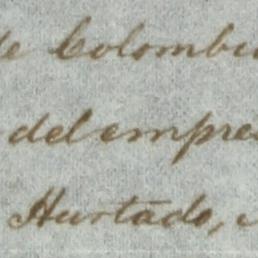 de Colombia
del empre
Hurtado,